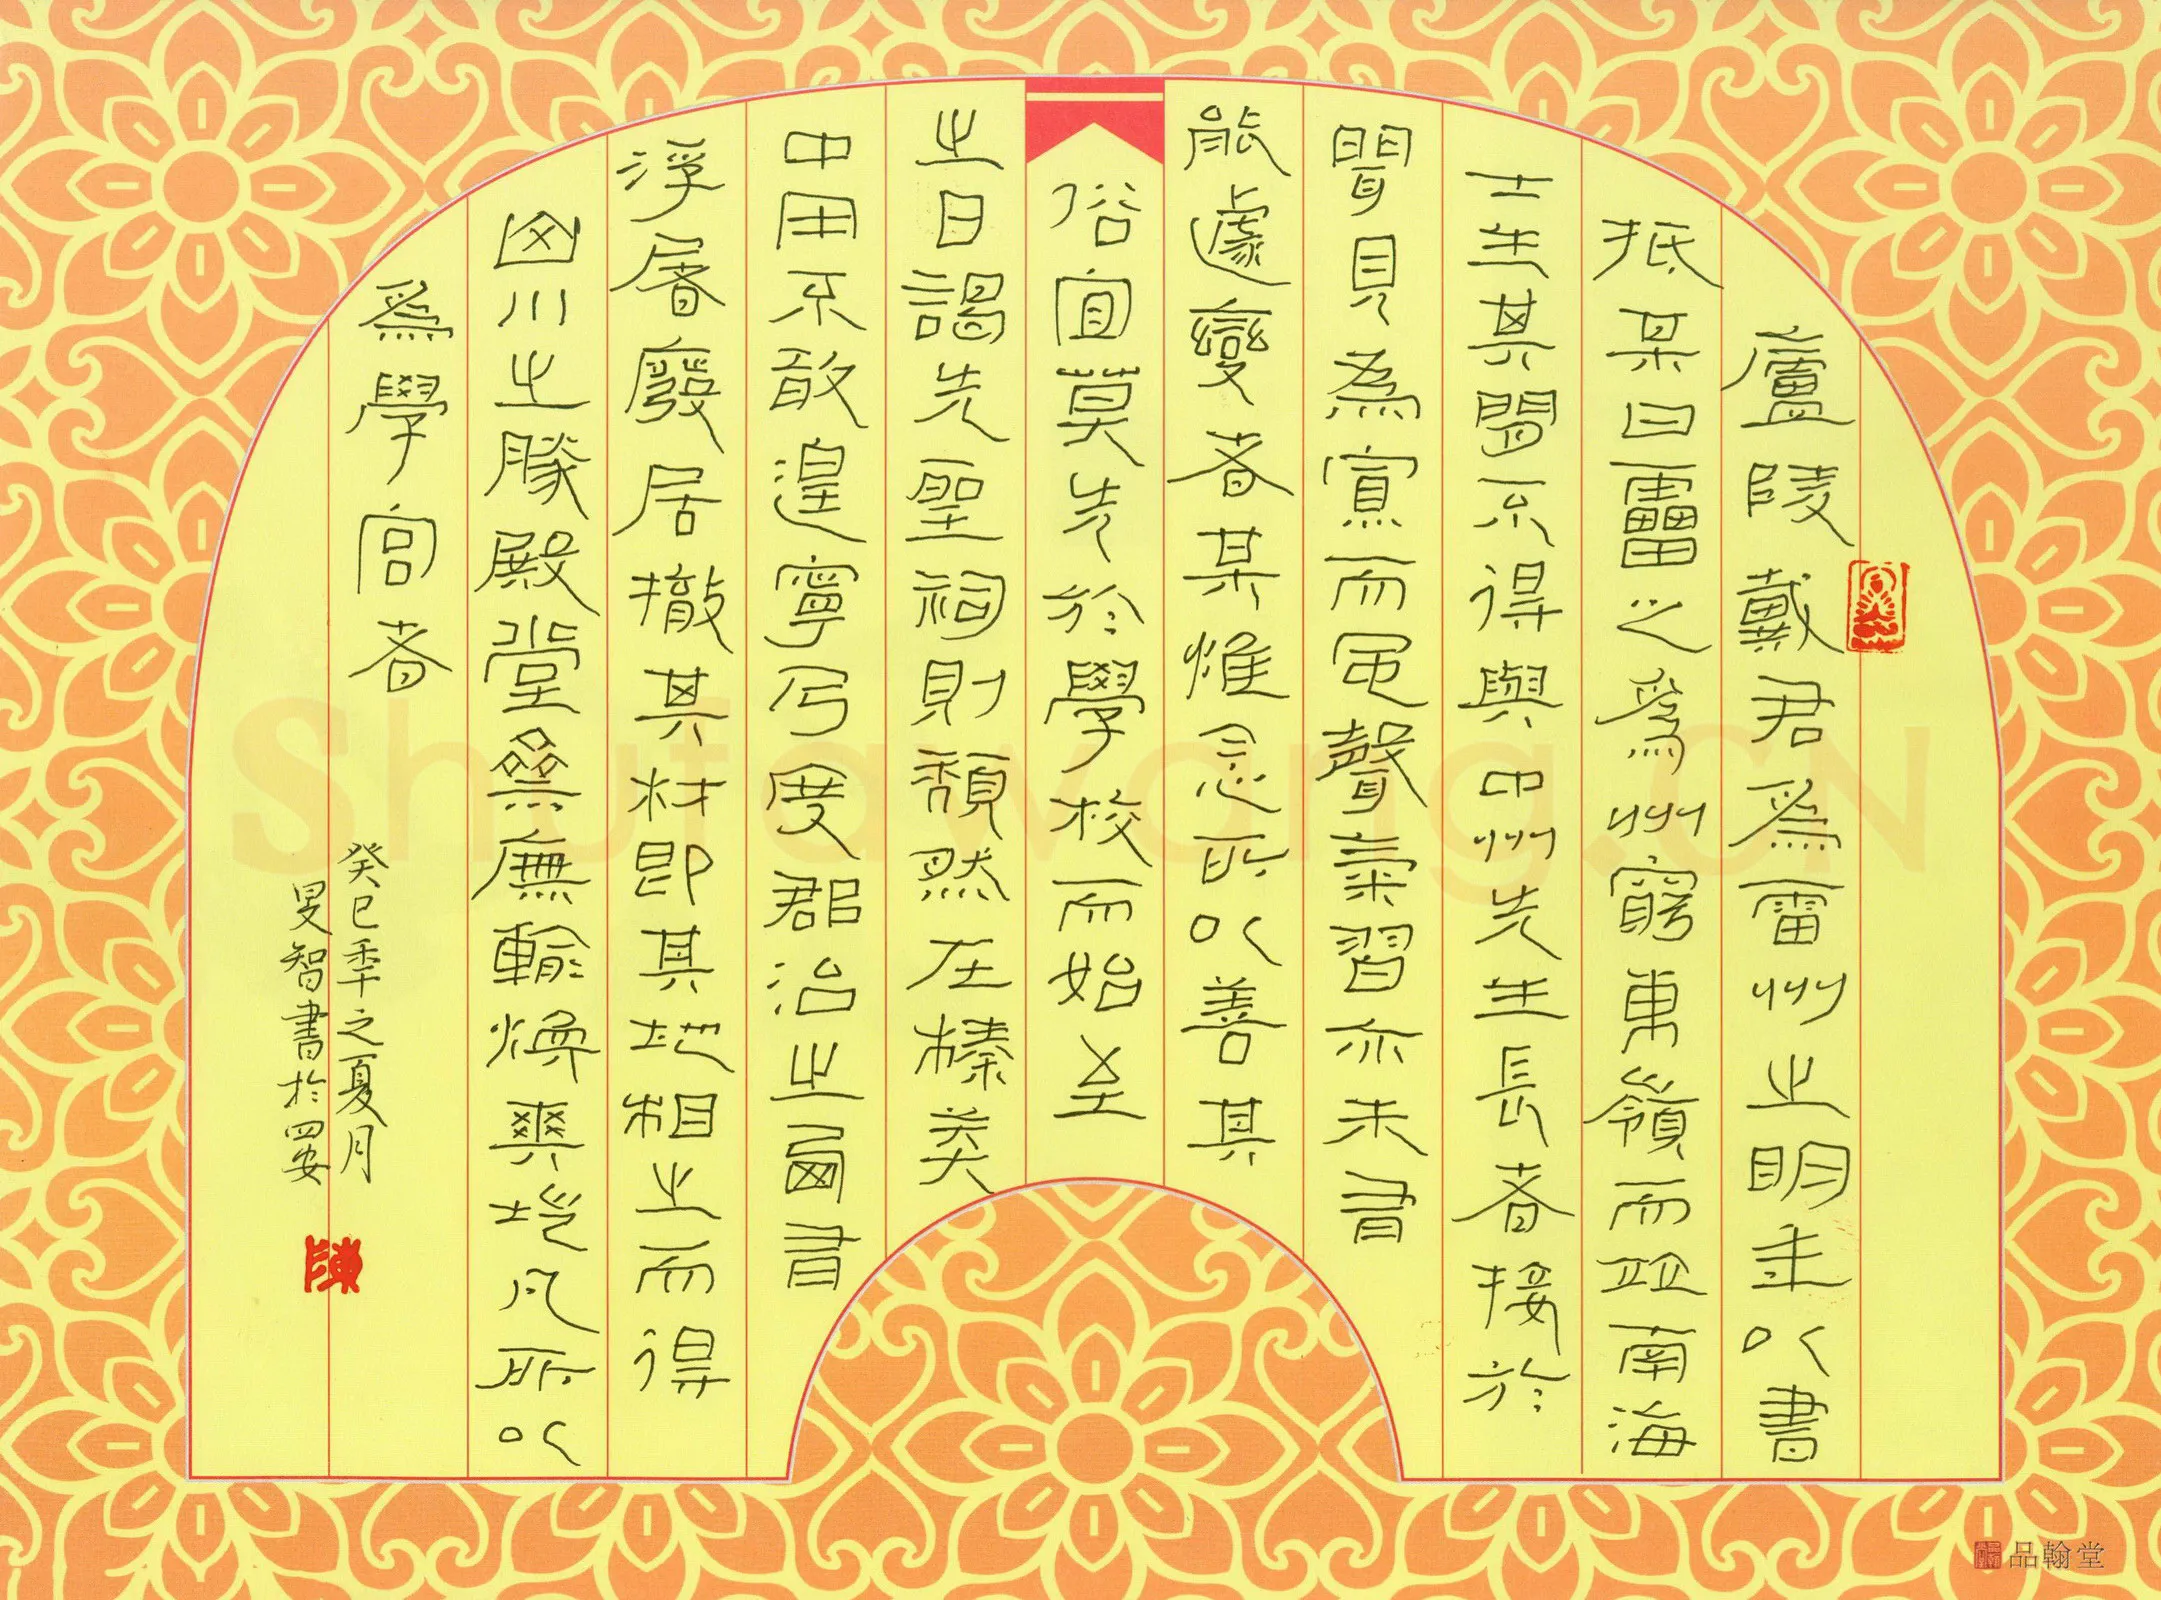 廬陵戴君爲雷州之明年以書
抵某曰雷之爲州窮東嶺而竝南海
士生其間不得與中州先生長者接於
聞見為寡而風聲氣習亦未
能遽變者某惟念所以善其
俗宜莫先於學校而始至
之日謁先聖祠則頹然在榛
中用不敢遑寧乃度郡治之西
浮屠廢居撤其材即其地相之而得
山川之勝殿堂㕘廡輪煥爽塏凡所以
爲學宮者
癸巳年之夏月
旻智書於西安
陳
品翰堂
Shufawang.CN